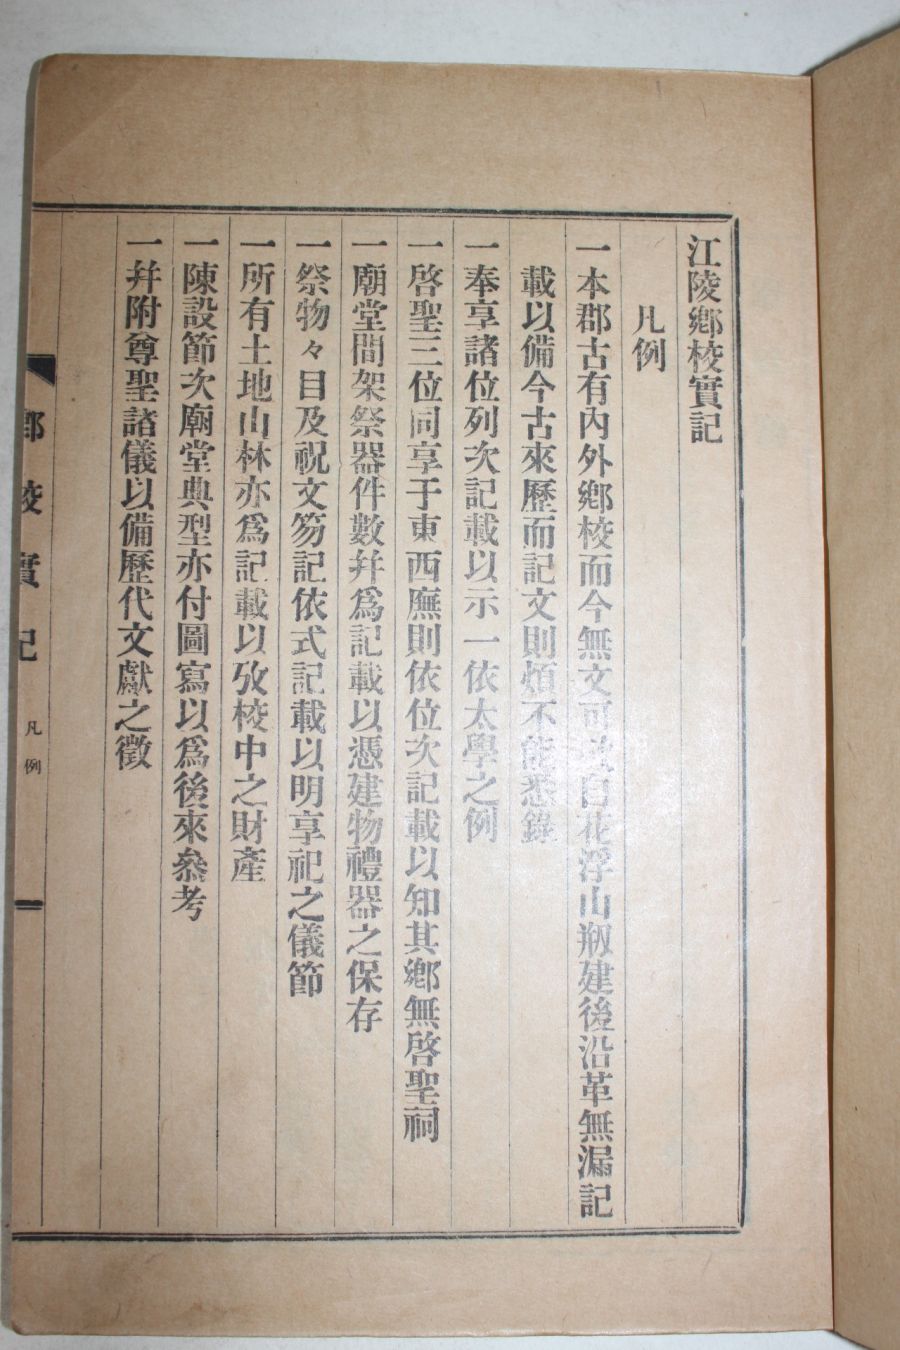 江陵鄕校實記
凡例
一本郡古有內外鄕校而今無文可 自花浮山刱建後沿革無漏記
載以備今古來歷而記文則煩不能悉錄
一奉享諸位列次記載以示一依太學之例
一啓聖三位同享于東西廡則依位次記載以知其鄕無啓聖祠
一廟堂間架祭器件數幷爲記載以憑建物禮器之保存
一祭物々目及祝文笏記依式記載以明享祀之儀節
一所有土地山林亦爲記載以攷校中之財產
一陳設節次廟堂典型亦付圖寫以爲後來叅考
一幷附尊聖諸儀以備歷代文獻之徵
鄕校實記 凡例